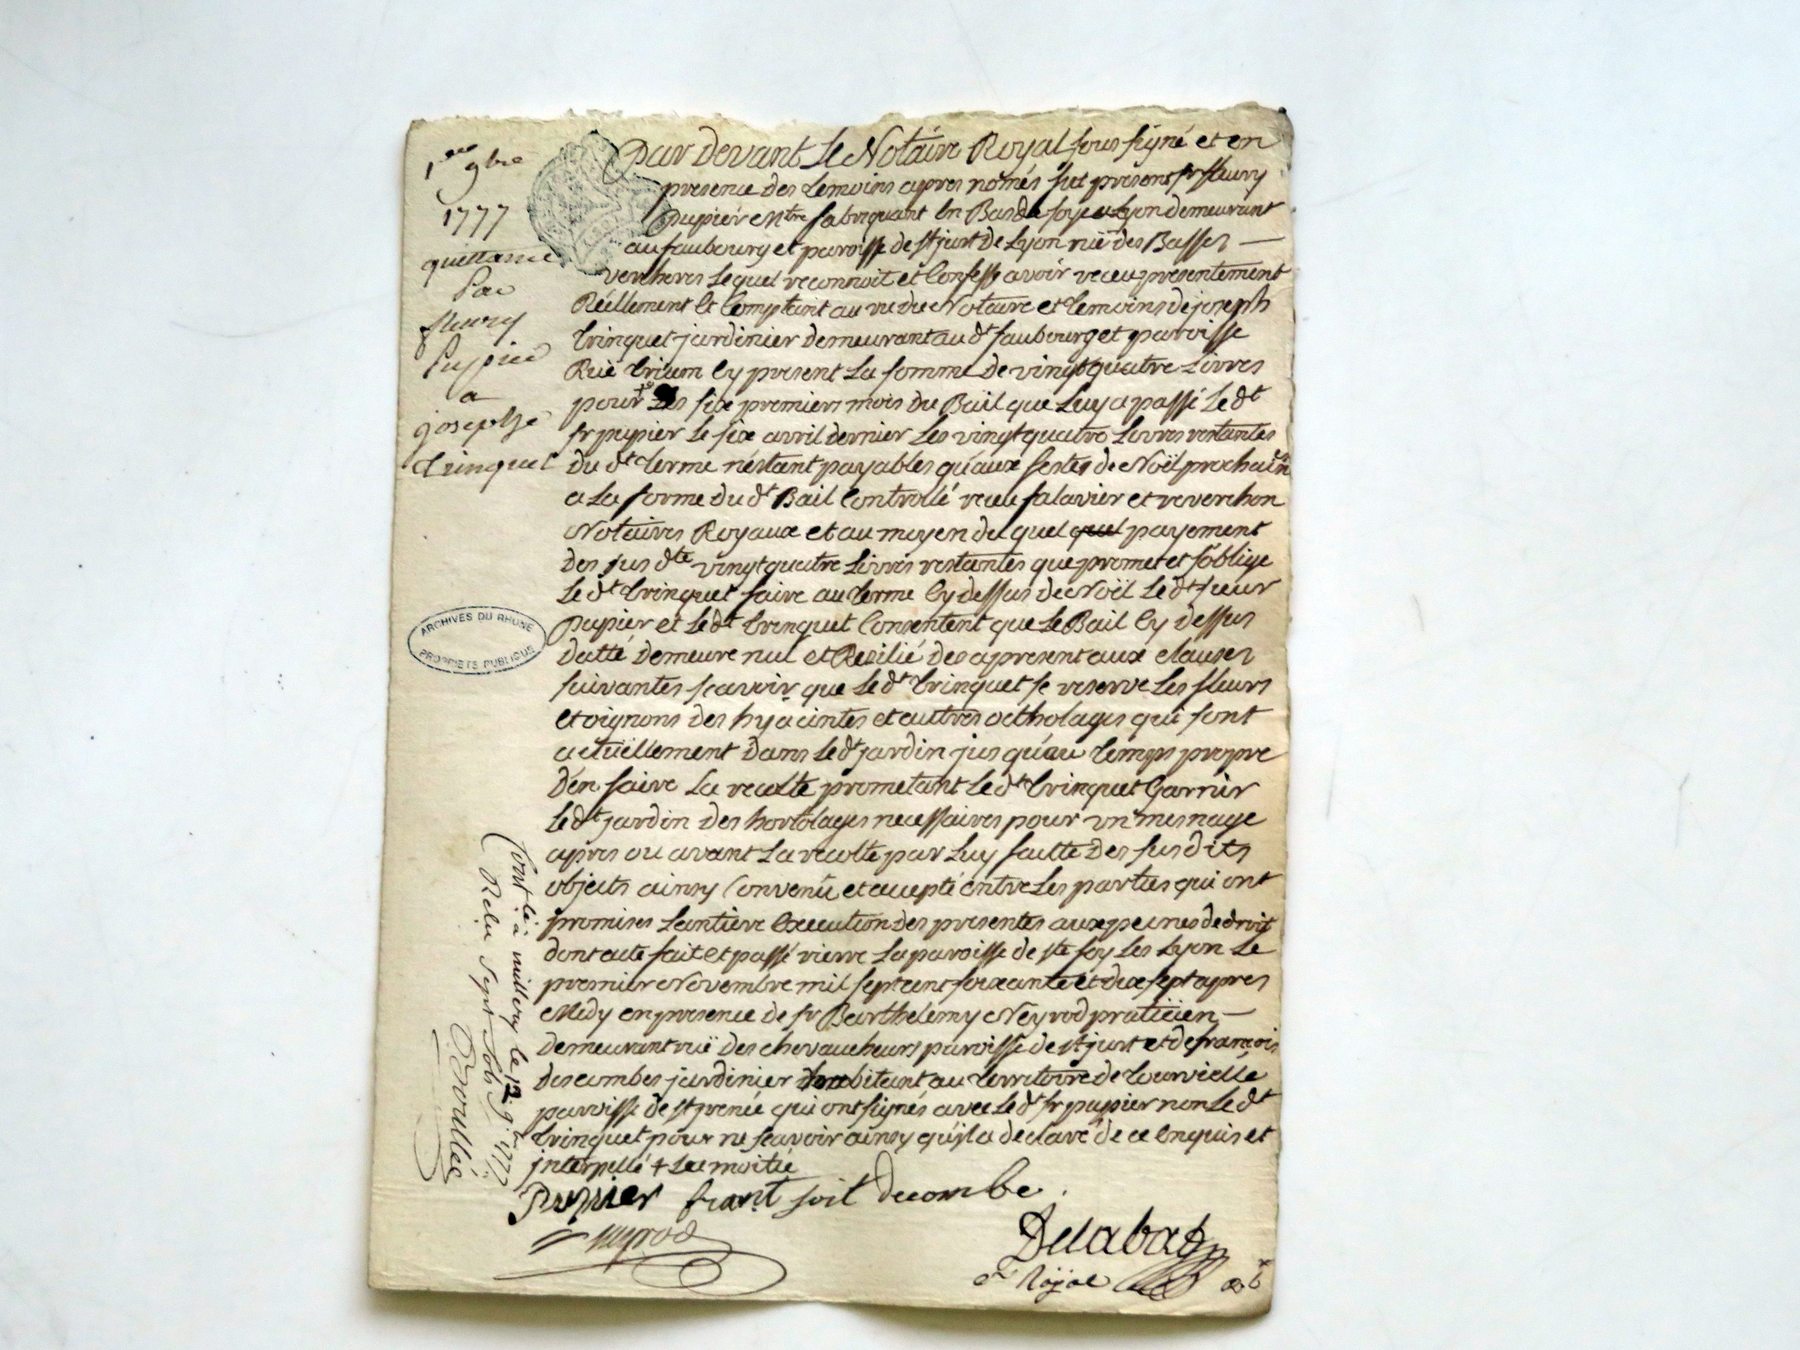 1ere 9bre
1777
quittance
Par
fleury
Pupier
a
joseph
trinquet
Par devant Le Notaire Royal sous signé et en
presence des temoins apres només fut present sr fleury
pupier mtre fabriquant en Bas de soye a Lyon demeurant
au faubourg et paroisse de st just de Lyon ruë des Basses
vercheres Lequel reconnoit et Confesse avoir receu presentement
Réellement et Comptant au vu du Notaire et temoins de joseph
trinquet jardinier demeurant au dt faubourg et paroisse
Ruë trium Cy present La somme de vingt quatre Livres
pour + Les six premiers mois du Bail que Luy a passé Le dt
sr pupier Le six avril dernier Les vingt quatre Livres restantes
du dt terme n'estant payables qu'aux festes de Noël prochain
a La forme du dt Bail Controllé receu falavier et reverchon
Notaires Royaux et au moyen du quel quel payement
des sus dte vingt quatre Livres restantes que promet et s'oblige
Le dt trinquet faire au terme Cy dessus de Noël Le dt sieur
pupier et Le dt trinquet Consentent que Le Bail Cy dessus
datté demeure nul et Resilié des a present aux clauses
suivantes scavoir que Le dt trinquet se reserve Les fleurs
et oignons des hyacintes et autres ortholages qui sont
actuëllement dans Le dt jardin jusqu'au temps propre
d'en faire La recolte prometant Le dt trinquet Garnir
Le dt jardin des hortolages necessaires pour un mesnage
apres ou avant La recolte par Luy faitte des susdits
objects ainsy Convenû et accepté entre Les parties qui ont
promises Lantiere Execution des presentes aux peines de droit
dont acte fait et passé rierre La paroisse de ste foy Les Lyon Le
premier Novembre mil sept cent soixante et dix sept apres
Midy en presence de sr Barthélemy Neyrod praticien
demeurant ruë des chevaucheurs paroisse de st just et de françois
descombes jardinier habitant au territoire de tourvielle
paroisse de st irenée qui ont signés avec Le dt sr pupier non Le dt
trinquet pour ne scavoir ainsy qu'il a declaré de ce Enquis et
interpellé + La moitié
Pupier frant soit decombe
neyrod
Delabat
nre Royal
ARCHIVES DU RHONE
PROPRIETE PUBLIQUE
Contlé à millery le 12 9bre 1777
Reçu Sept Sols
Droullés